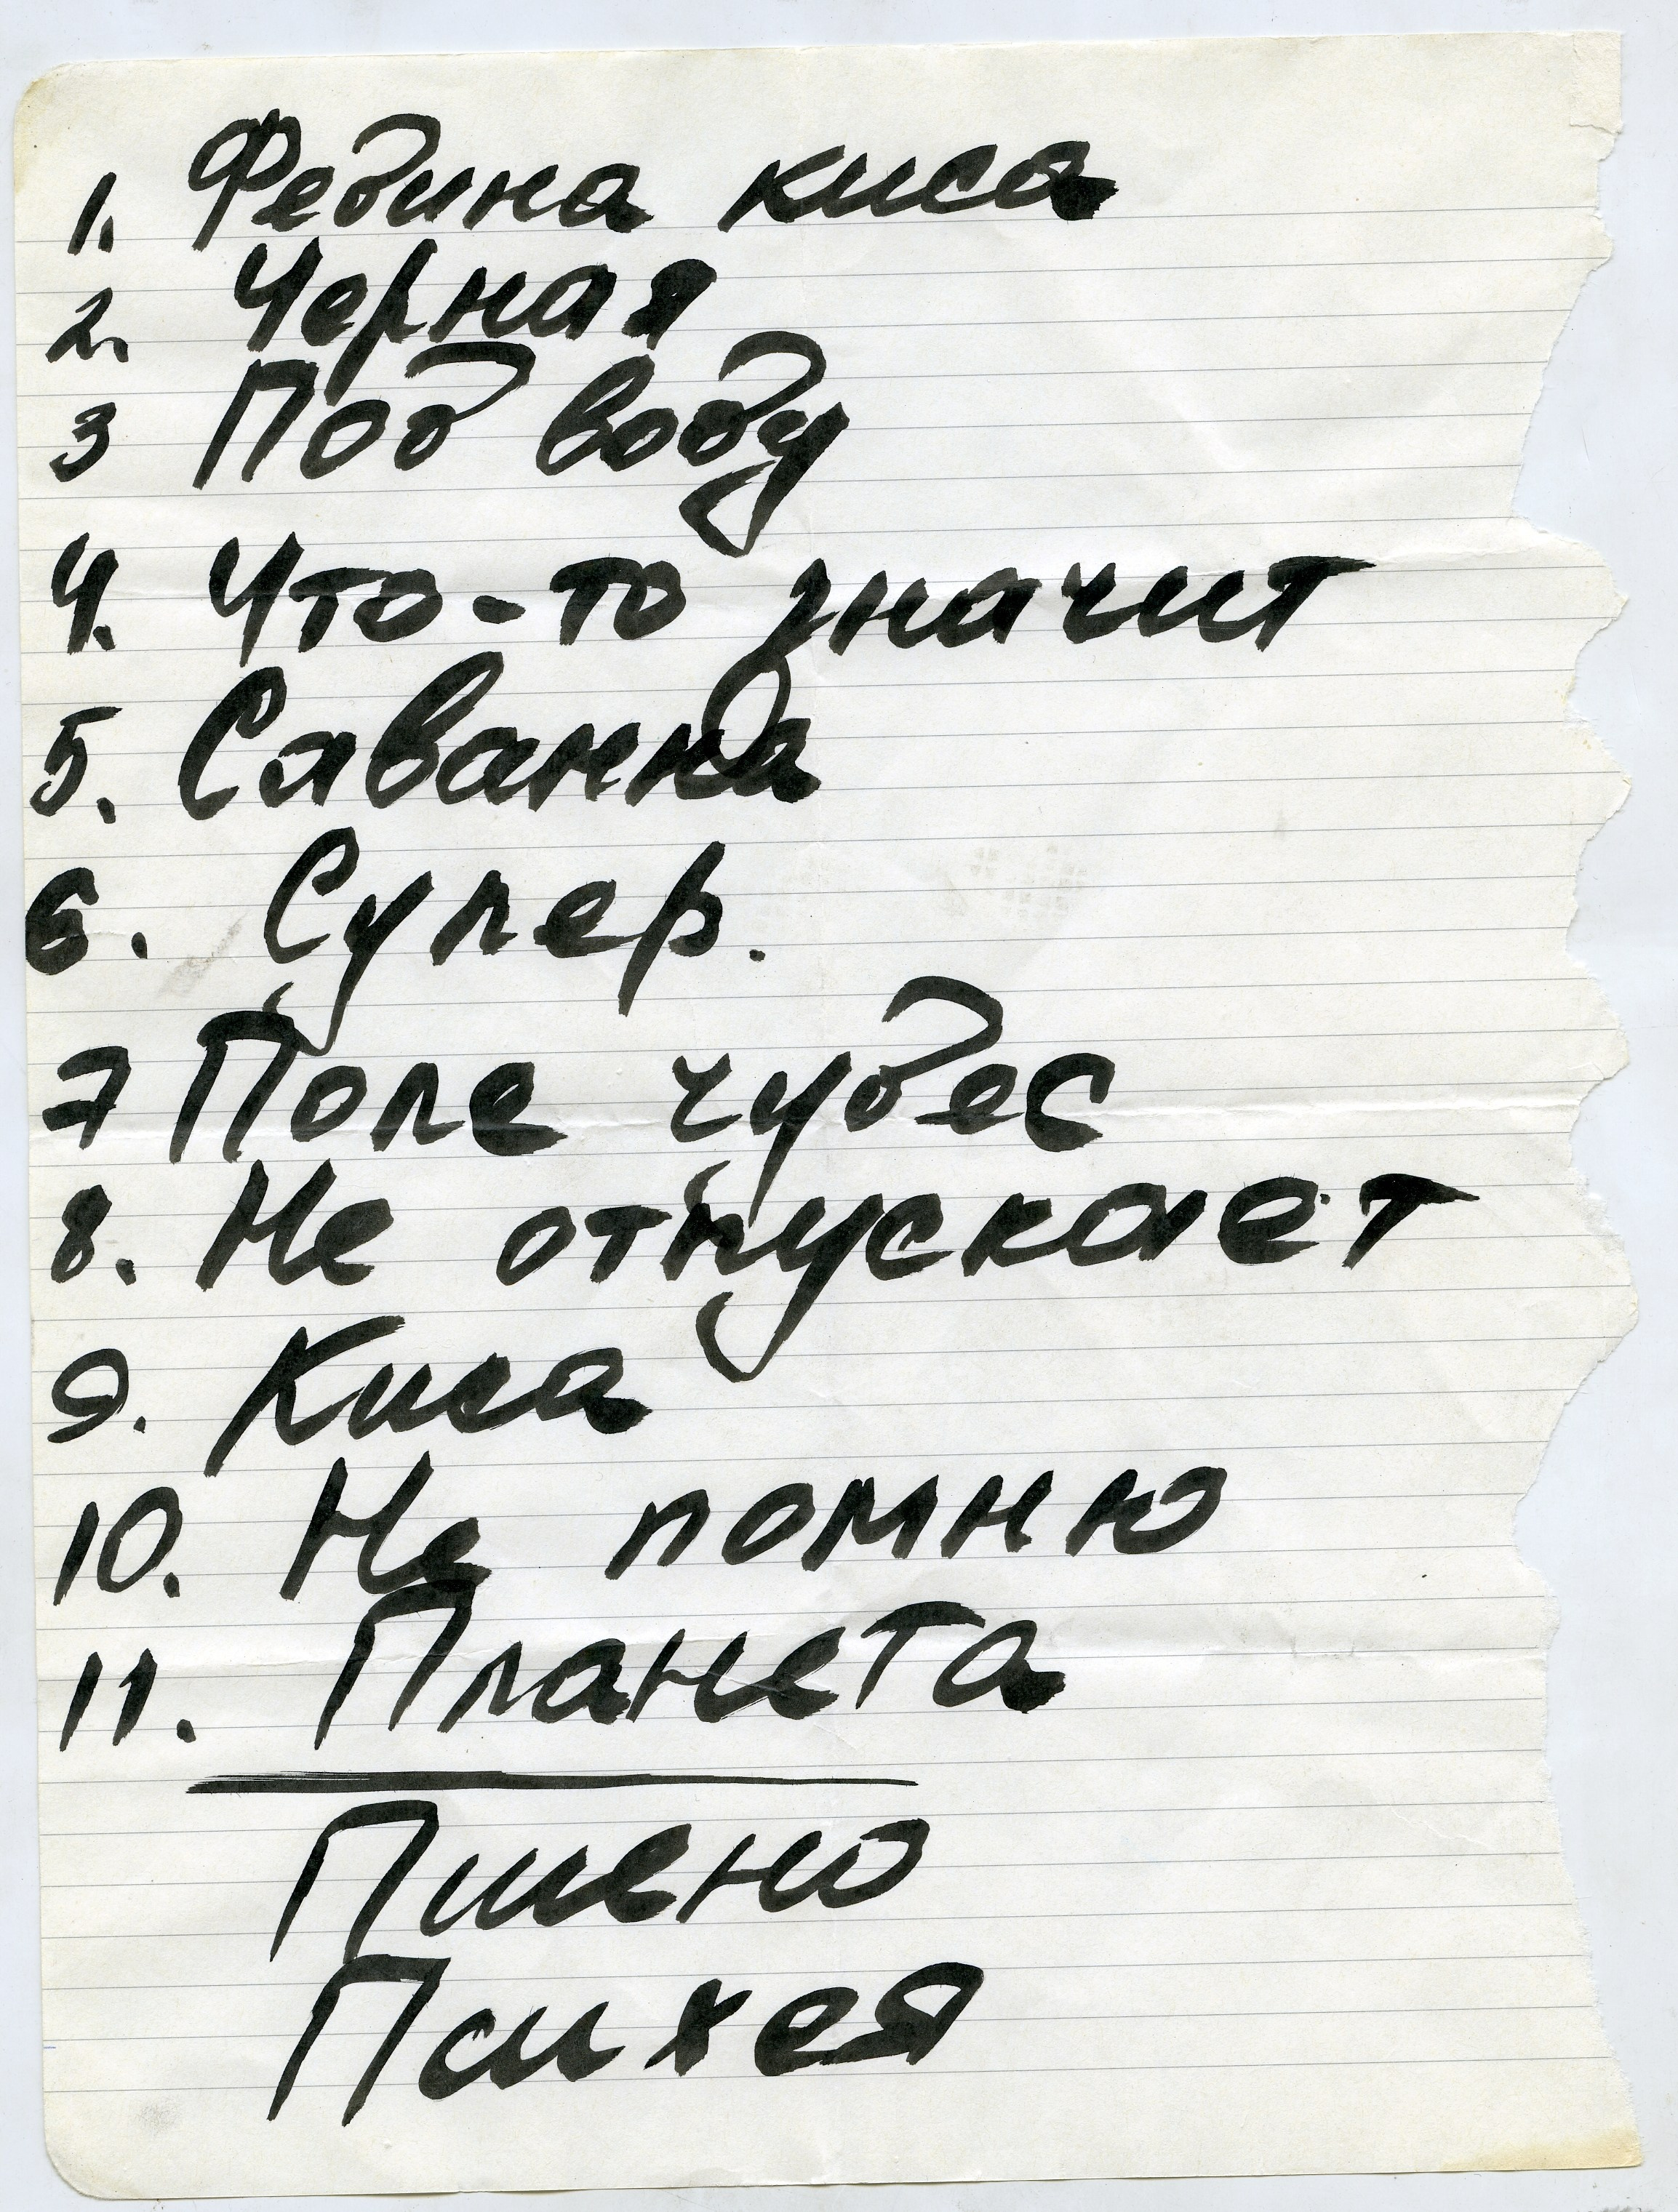 1. Федина киса
2. Черная
3 Под воду
4. Что-то значит
5. Саванна
6. Супер.
7 Поле чудес
8. Не отпускает
9. Киса
10. Не помню
11. Планета
Пшено
Психея